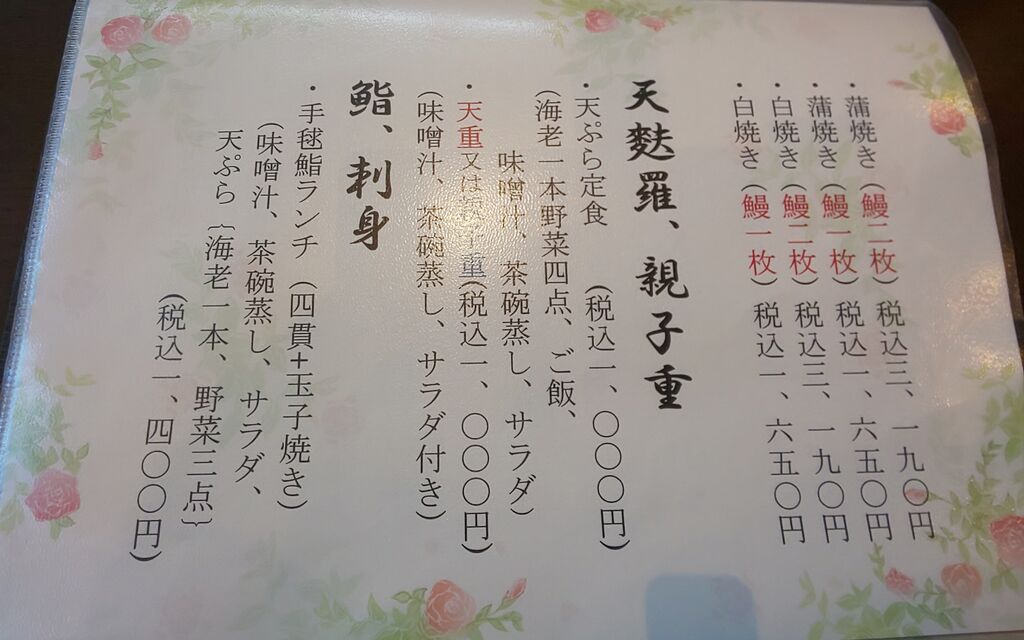 ・蒲焼き（鰻二枚）税込三、一九〇円
・蒲焼き（鰻一枚）税込一、六五〇円
・白焼き（鰻二枚）税込三、一九〇円
・白焼き（鰻一枚）税込一、六五〇円
天麩羅、親子重
・天ぷら定食　（税込一、〇〇〇円）
（海老一本野菜四点、ご飯、
味噌汁、茶碗蒸し、サラダ）
・天重又は親子重（税込一、〇〇〇円）
（味噌汁、茶碗蒸し、サラダ付き）
鮨、刺身
・手毬鮨ランチ（四貫+玉子焼き）
（味噌汁、茶碗蒸し、サラダ、
天ぷら｛海老一本、野菜三点｝
（税込一、四〇〇円）